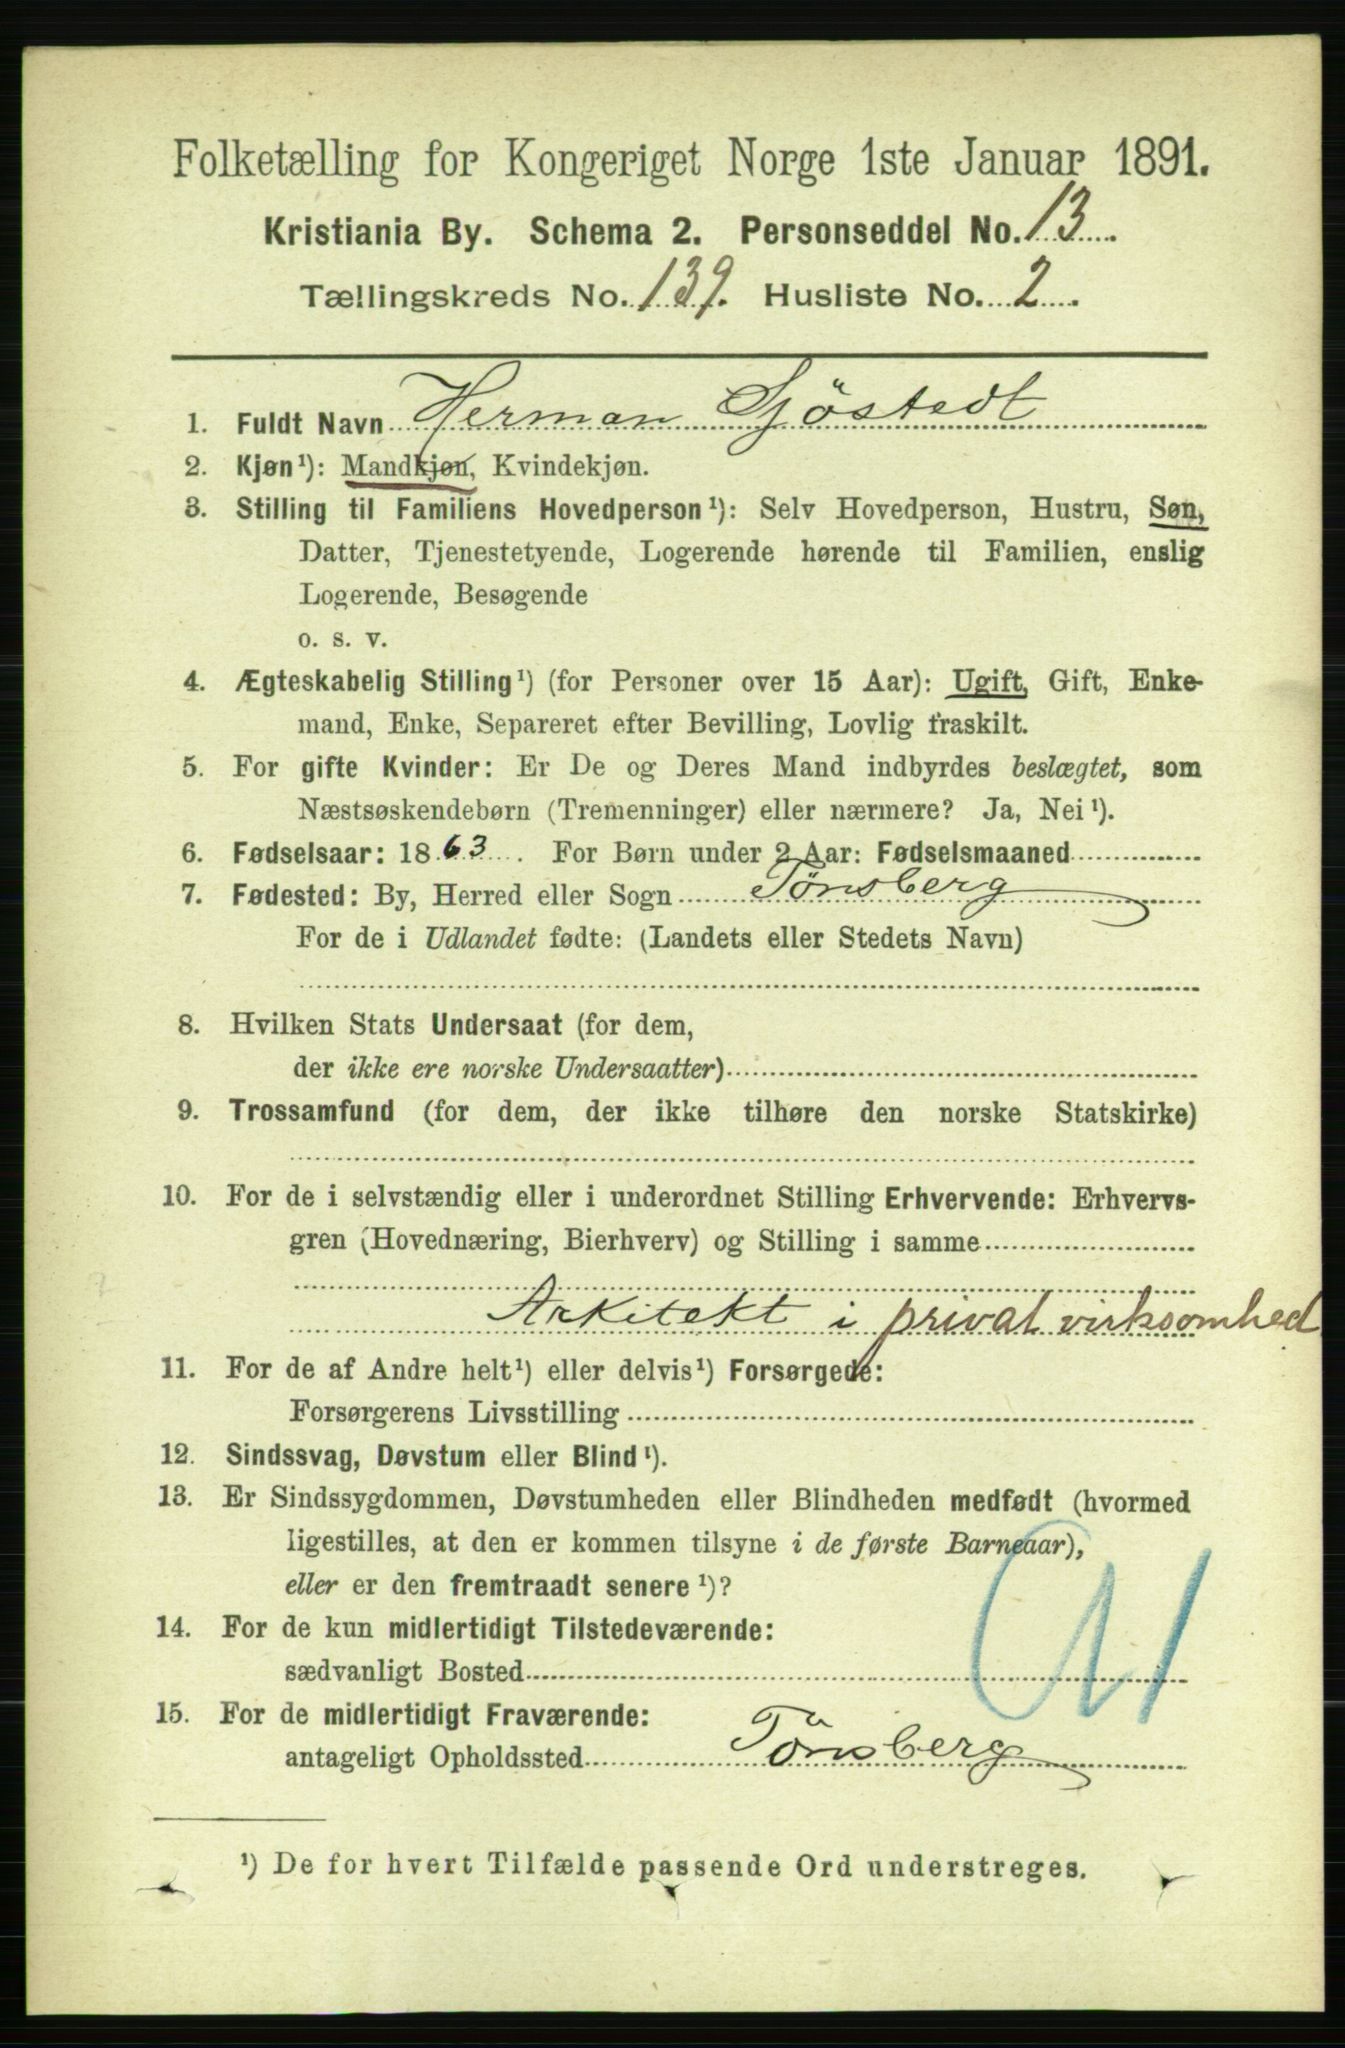 Folketælling for Kongeriget Norge 1ste Januar 1891.
Kristiania By. Schema 2. Personseddel No. 13.
Tællingskreds No. 139. Husliste No. 2.
1. Fuldt Navn Herman Sjöstedt
2. Kjøn¹): Mandkjøn, Kvindekjøn.
3. Stilling til Familiens Hovedperson¹): Selv Hovedperson, Hustru, Søn,
Datter, Tjenestetyende, Logerende hørende til Familien, enslig
Logerende, Besøgende
o. s. v.
4. Ægteskabelig Stilling¹) (for Personer over 15 Aar): Ugift, Gift, Enke-
mand, Enke, Separeret efter Bevilling, Lovlig fraskilt.
5. For gifte Kvinder: Er De og Deres Mand indbyrdes beslægtet, som
Næstsøskendebørn (Tremenninger) eller nærmere? Ja, Nei¹).
6. Fødselsaar: 1863. For Børn under 2 Aar: Fødselsmaaned
7. Fødested: By, Herred eller Sogn Tönsberg
For de i Udlandet fødte: (Landets eller Stedets Navn)
8. Hvilken Stats Undersaat (for dem,
der ikke ere norske Undersaatter)
9. Trossamfund (for dem, der ikke tilhøre den norske Statskirke)
10. For de i selvstændig eller i underordnet Stilling Erhvervende: Erhvervs-
gren (Hovednæring, Bierhverv) og Stilling i samme
Arkitekt i privat virksomhed
11. For de af Andre helt¹) eller delvis¹) Forsørgede:
Forsørgerens Livsstilling
12. Sindssvag, Døvstum eller Blind¹).
13. Er Sindssygdommen, Døvstumheden eller Blindheden medfødt (hvormed
ligestilles, at den er kommen tilsyne i de første Barneaar),
eller er den fremtraadt senere¹)?
14. For de kun midlertidigt Tilstedeværende:
sædvanligt Bosted
15. For de midlertidigt Fraværende:
antageligt Opholdssted Tönsberg
¹) De for hvert Tilfælde passende Ord understreges.